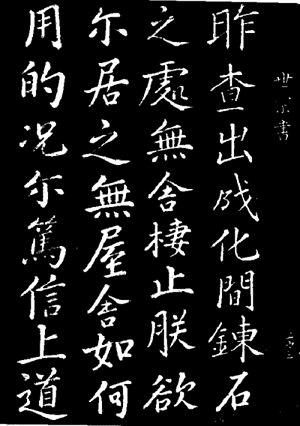 昨查出成化間鍊石
之處無舍棲止朕欲
尓居之無屋舍如何
用的况尓篤信上道